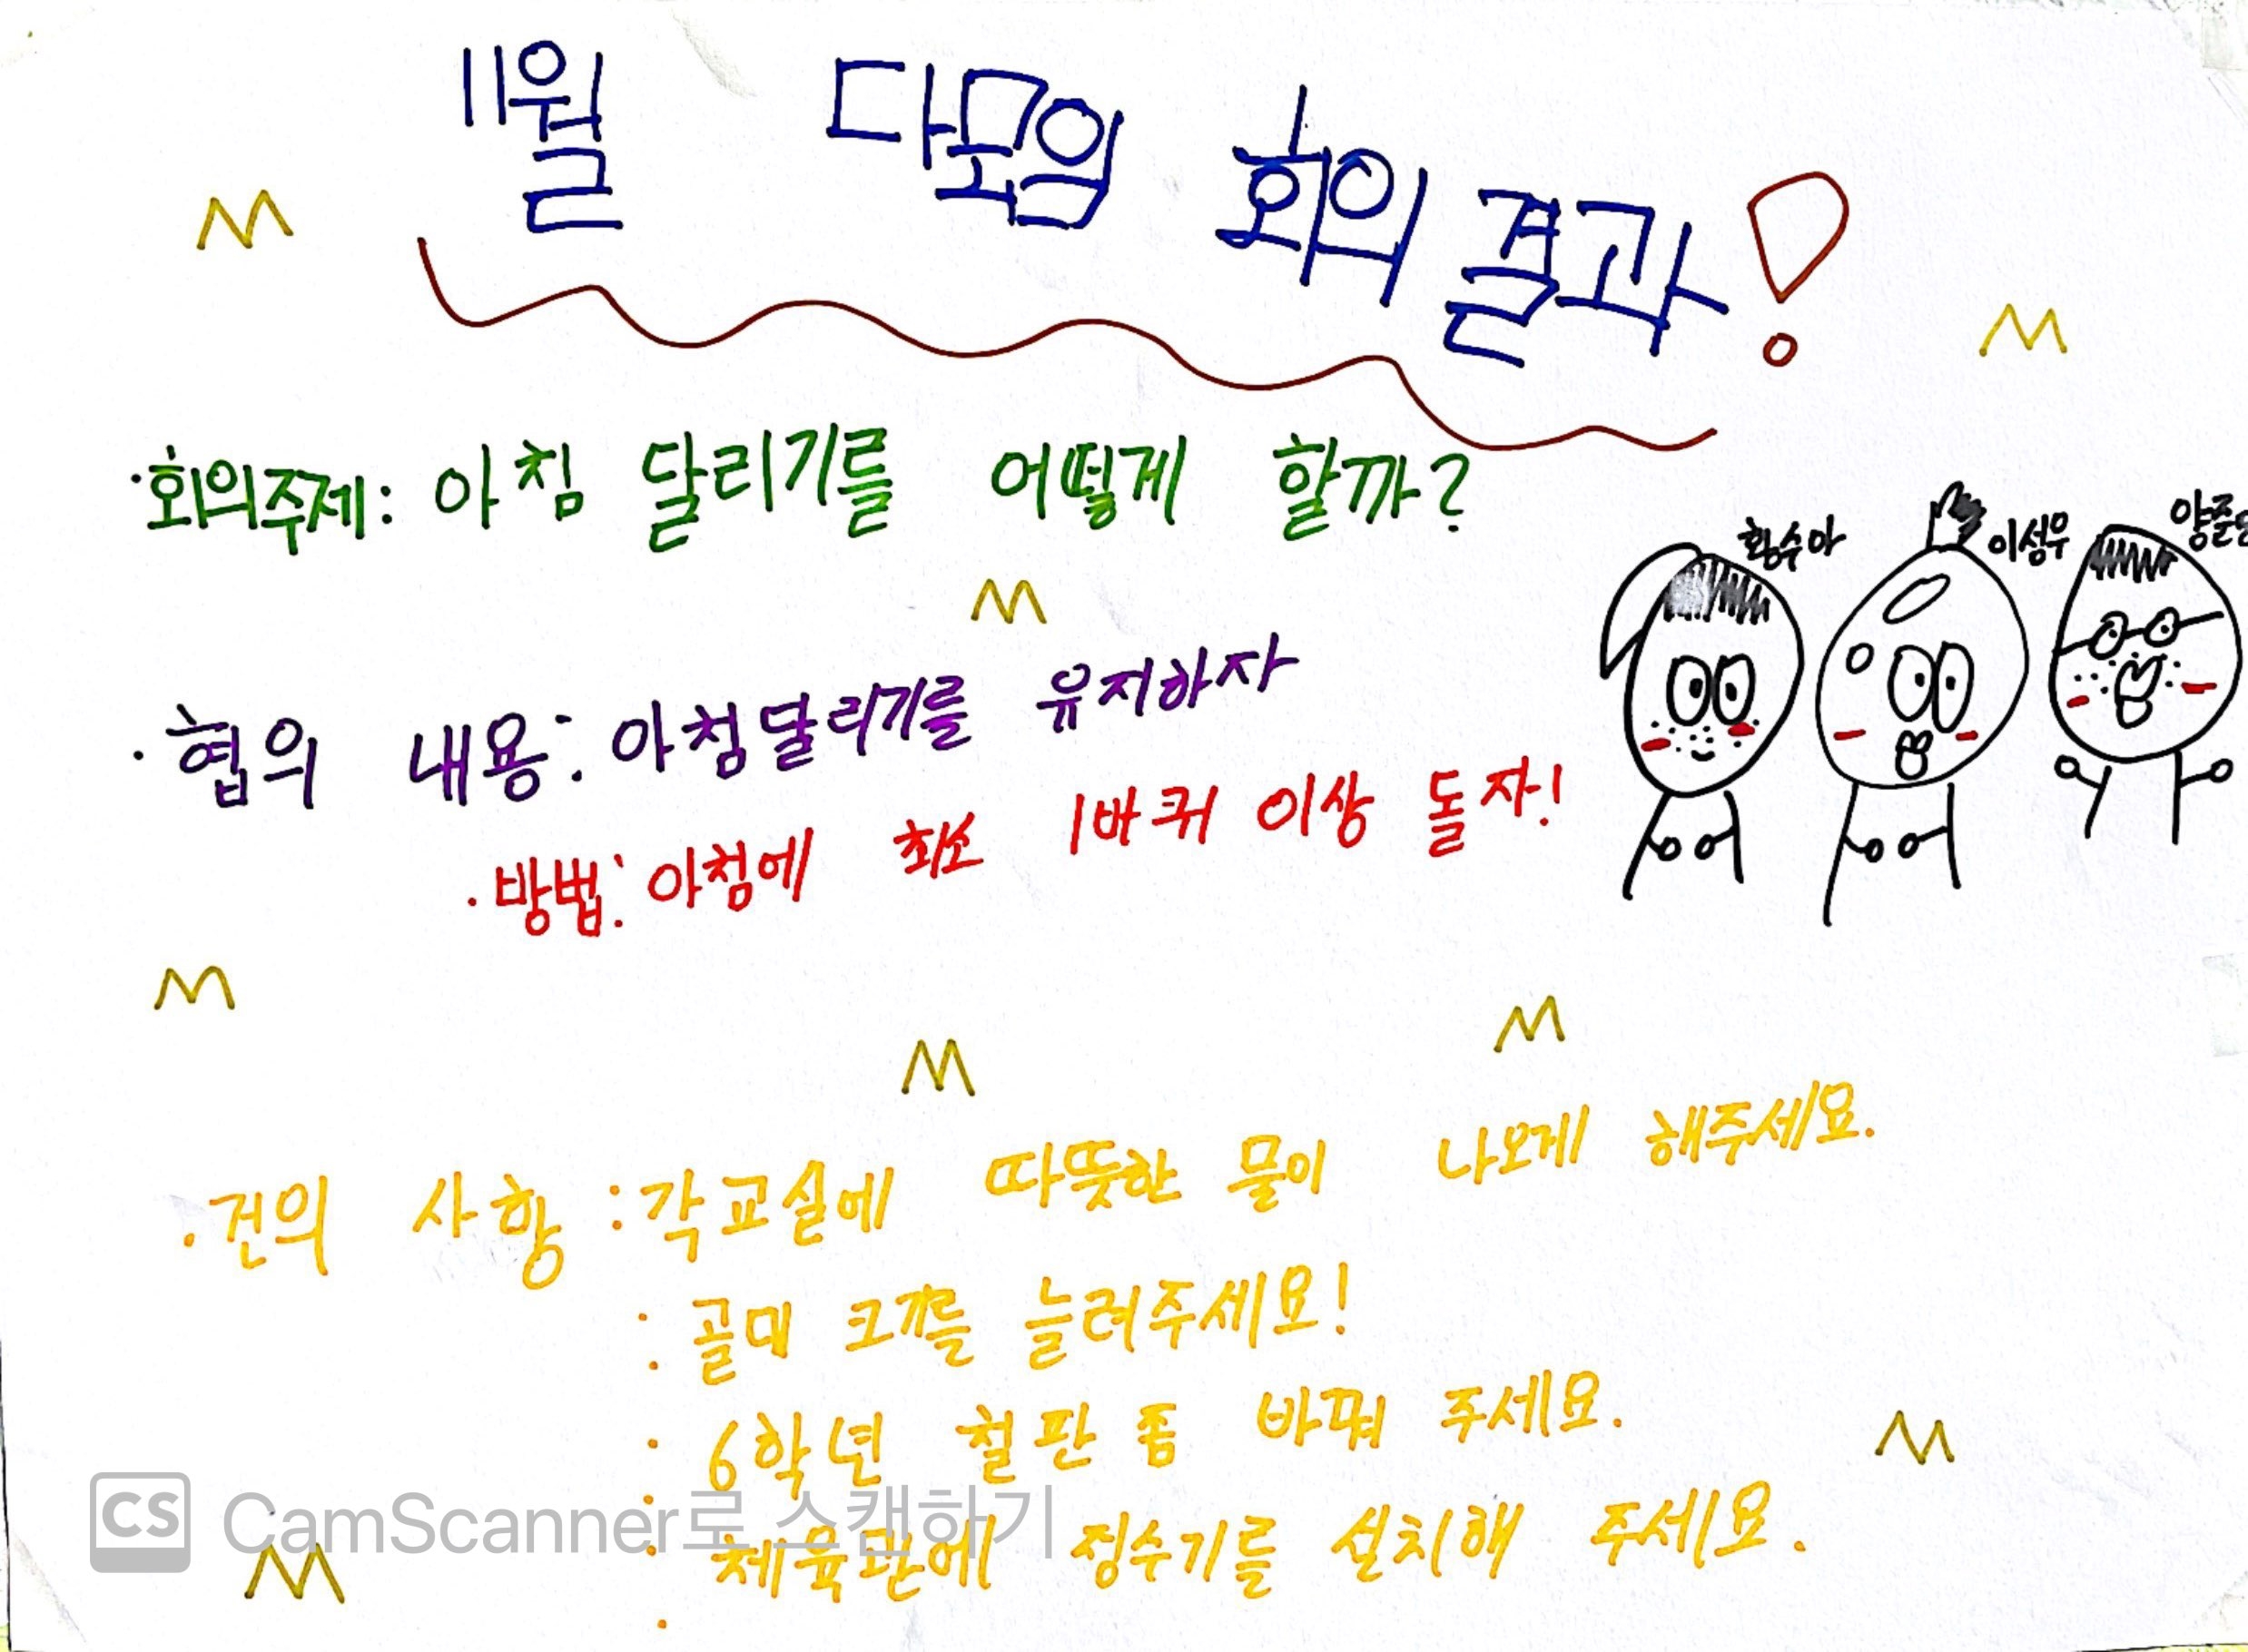 11월 다모임 회의 결과!
·회의주제: 아침 달리기를 어떻게 할까?
황수아 이성우 양준
·협의 내용: 아침달리기를 유지하자
·방법: 아침에 최소 1바퀴 이상 돌자!
·건의 사항 :각 교실에 따뜻한 물이 나오게 해주세요.
: 골대 크기를 늘려주세요!
: 6학년 철판 좀 바꿔 주세요.
: 체육관에 정수기를 설치해 주세요.
CS CamScanner로 스캔하기